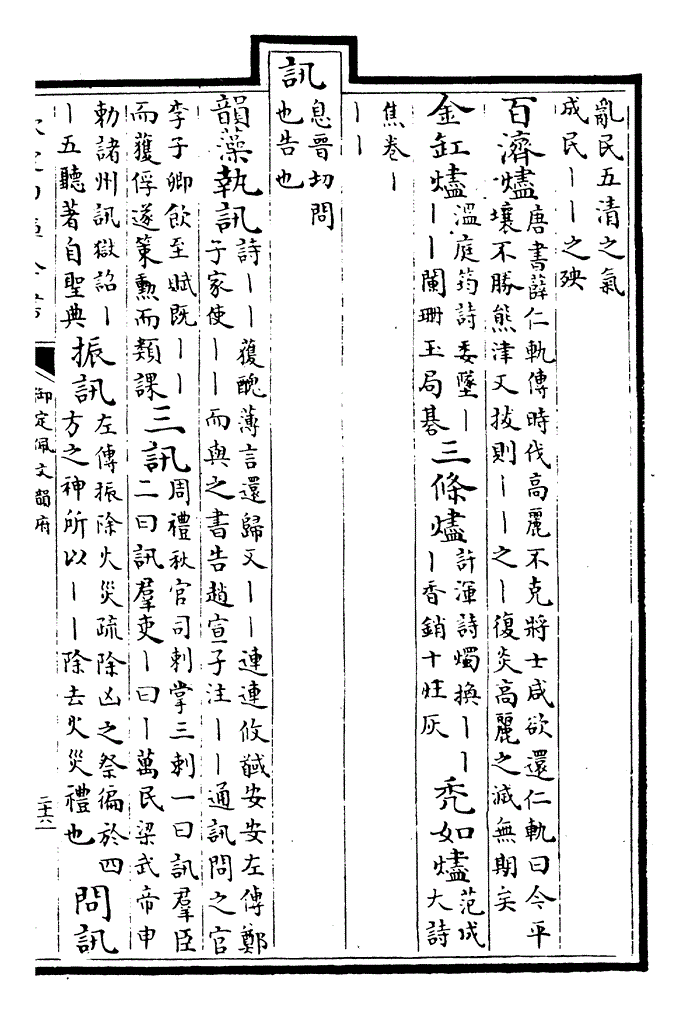 亂民五清之氣
成民丨丨之殃
百濟燼 唐書薛仁軌傳時伐高麗不克將士咸欲還仁軌曰今平
壤不勝熊津又拔則丨丨之丨復炎高麗之滅無期矣
金缸燼 溫庭筠詩委墜丨
丨丨闌珊玉局碁
三條燼 許渾詩燭換丨丨
丨香銷十炷灰
禿如燼 范成
大詩
焦卷丨
丨丨
訊 息晉切問
也告也
韻藻執訊 詩丨丨獲醜薄言還歸又丨丨連連攸馘安安左傳鄭
子家使丨丨而與之書告趙宣子注丨丨通訊問之官
李子卿飲至賦既丨丨
而獲俘遂策勲而類課
三訊 周禮秋官司刺掌三刺一曰訊羣臣
二曰訊羣吏丨曰丨萬民梁武帝申
勅諸州訊獄詔丨
丨五聽著自聖典
振訊 左傳振除火災疏除凶之祭徧於四
方之神所以丨丨除去火災禮也
問訊
御定佩文韻府
二十六